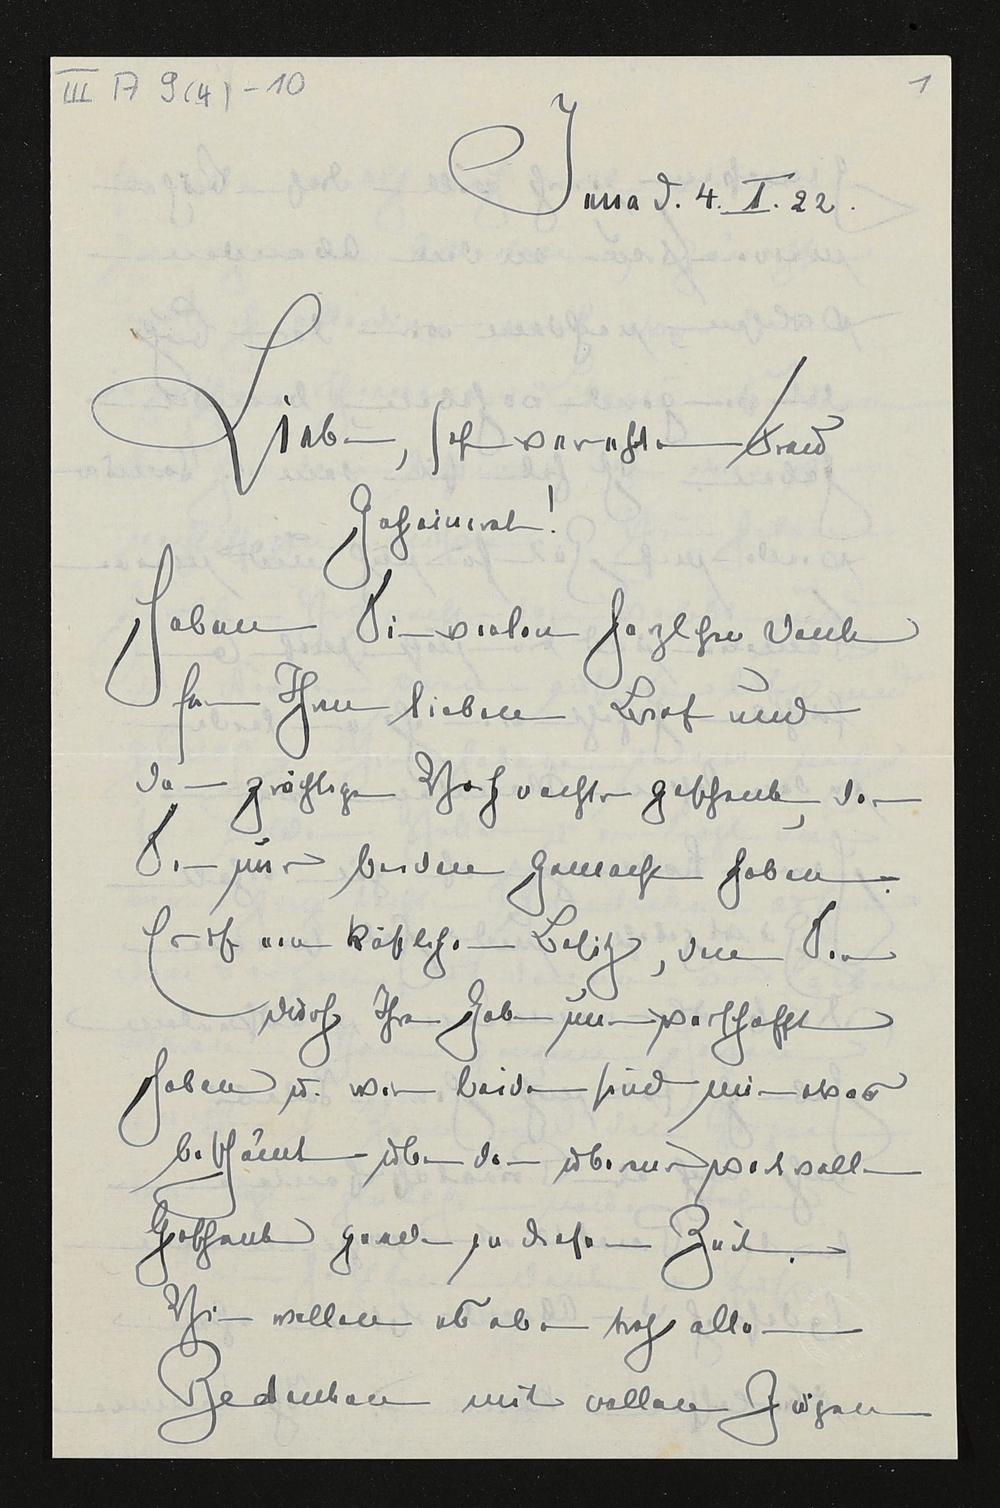 III A 9(4)-10
1
Jena d. 4. I. 22.
Liebe, sehr verehrte Frau
Geheimrat!
Haben Sie vielen herzlichen Dank
für Ihren lieben Brief und
das prächtige Weihnachtsgeschenk, das
Sie uns beiden gemacht haben.
Es ist ein köstlicher Besitz, den Sie
durch Ihre Gabe uns verschafft
haben u. wir beide sind nur etwas
beschämt über das überaus wertvolle
Geschenk gerade zu dieser Zeit.
Wir wollen es aber trotz aller
Bedenken mit vollen Zügen